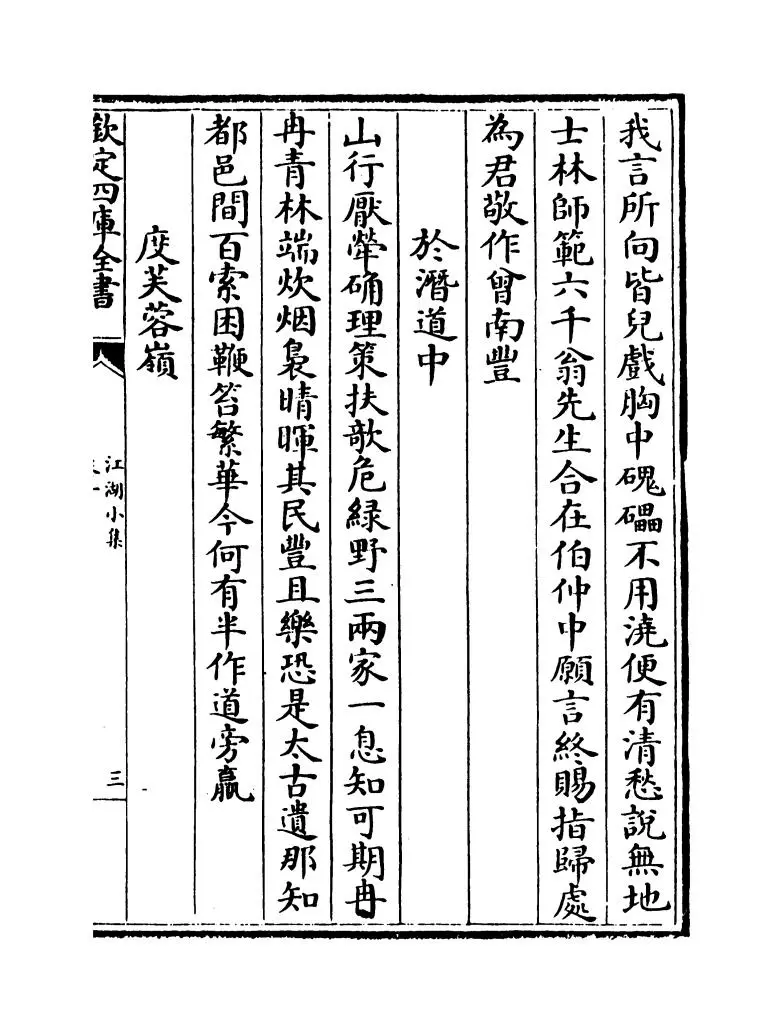 我言所向皆兒戲胸中磈礧不用澆便有清愁說無地
士林師範六千翁先生合在伯仲中願言終賜指歸處
為君敬作曾南豐
於潛道中
山行厭犖确理策扶欹危綠野三兩家一息知可期冉
冉青林端炊烟裊晴暉其民豐且樂恐是太古遺那知
都邑間百索困鞭笞繁華今何有半作道旁羸
度芙蓉嶺
欽定四庫全書
江湖小集
三